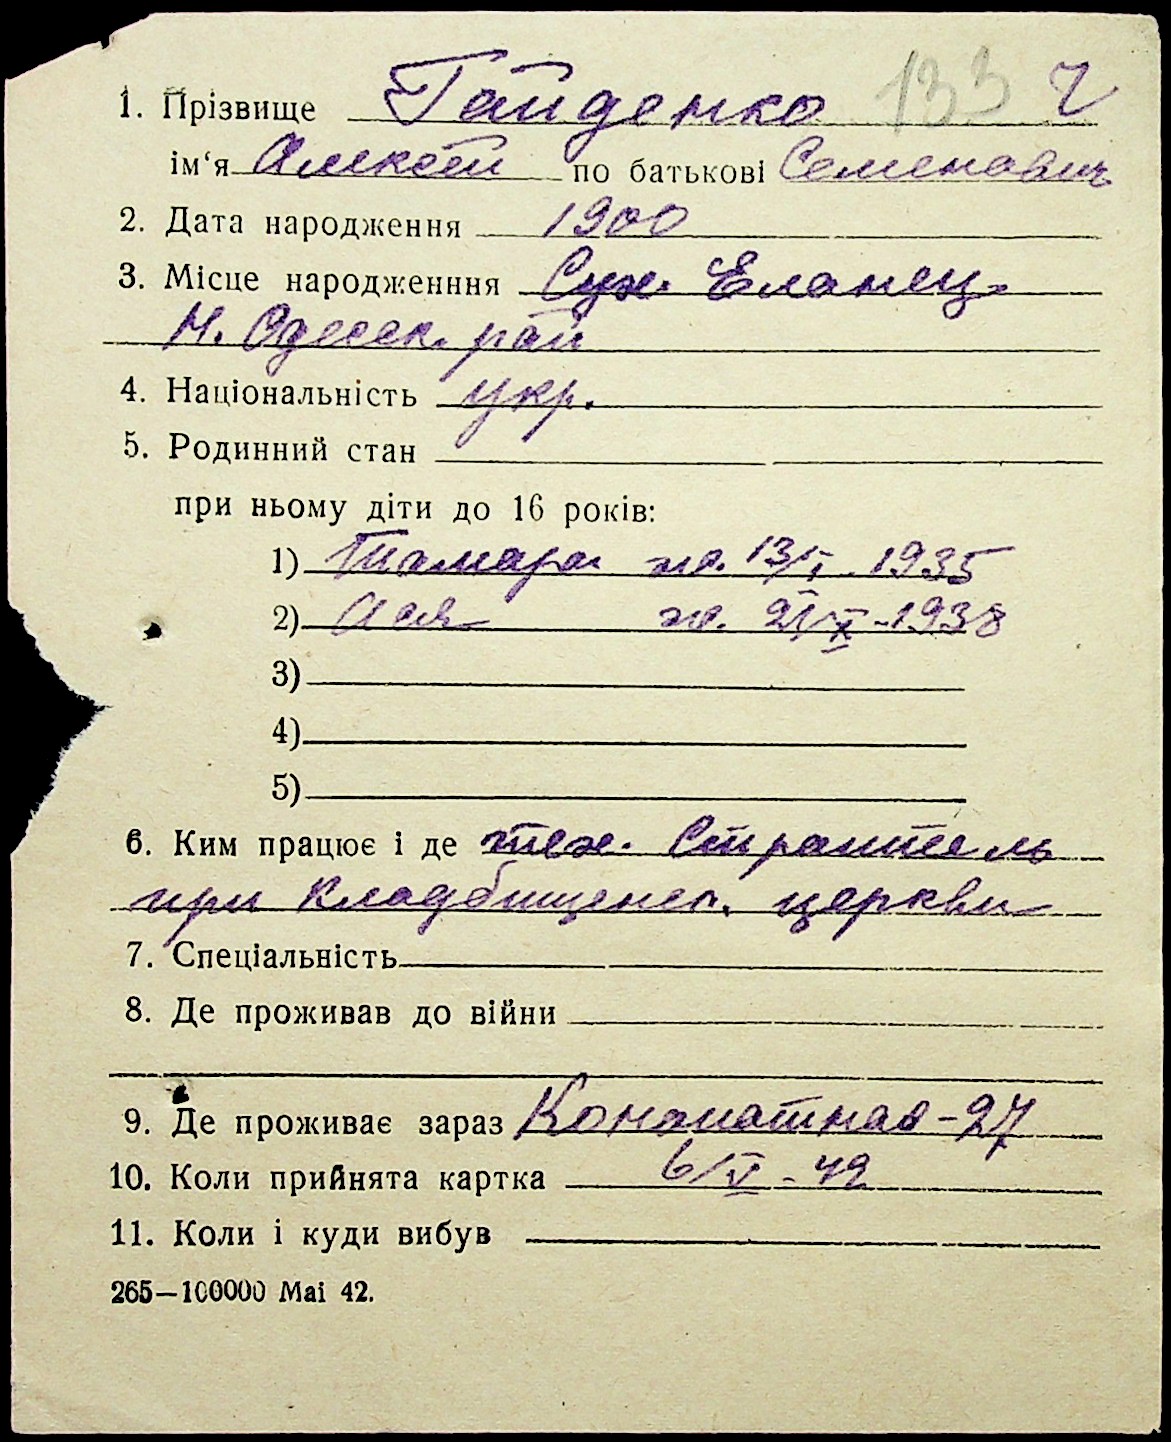 1. Прізвище Гайденко 133 Ч
ім‘я Алексей по батькові Семенович
2. Дата народження 1900
3. Місце народженння Сух. Еланец
Н. Одесск. рай
4. Національність укр.
5. Родинний стан
при ньому діти до 16 років:
1) Тамара ж. 13/I - 1935
2) Ася ж. 21/X - 1938
3)
4)
5)
6. Ким працює і де тех. Строитель
при кладбищенск. церкви
7. Спеціальність
8. Де проживав до війни
9. Де проживає зараз - 27
10. Коли прийнята картка 6/V - 42
11. Коли і куди вибув
265—100000 Маі 42.